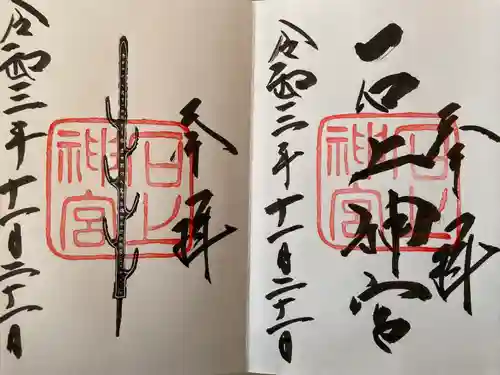 奉拝
石上神宮
石上神宮
令和三年十一月二十一日
奉拝
石上神宮
令和三年十一月二十一日